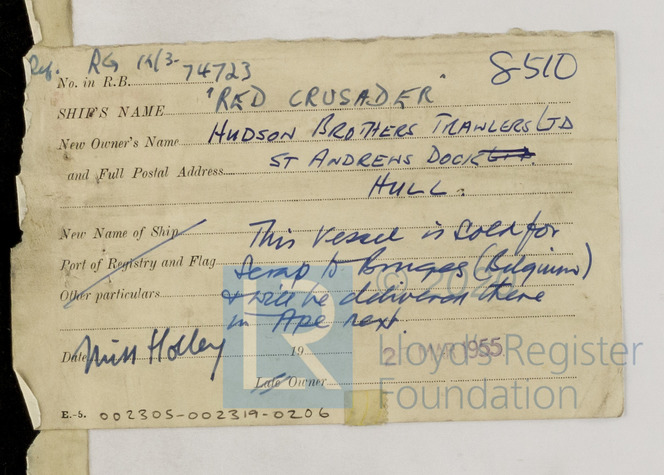 Ref. RG 14/3-
8510
No. in R.B. 74723
SHIP'S NAME "RED CRUSADER"
New Owner's Name HUDSON BROTHERS TRAWLERS LTD
and Full Postal Address ST ANDREWS DOCK
HULL.
New Name of Ship This vessel is sold for
Port of Registry and Flag scrap to Bruges (Belgium)
Other particulars & will be delivered there
in Ape next.
Date Miss Holley 19 2 MAR 1955
Late Owner
E.-5. 002305-002319-0206
LR
Lloyd's Register
Foundation